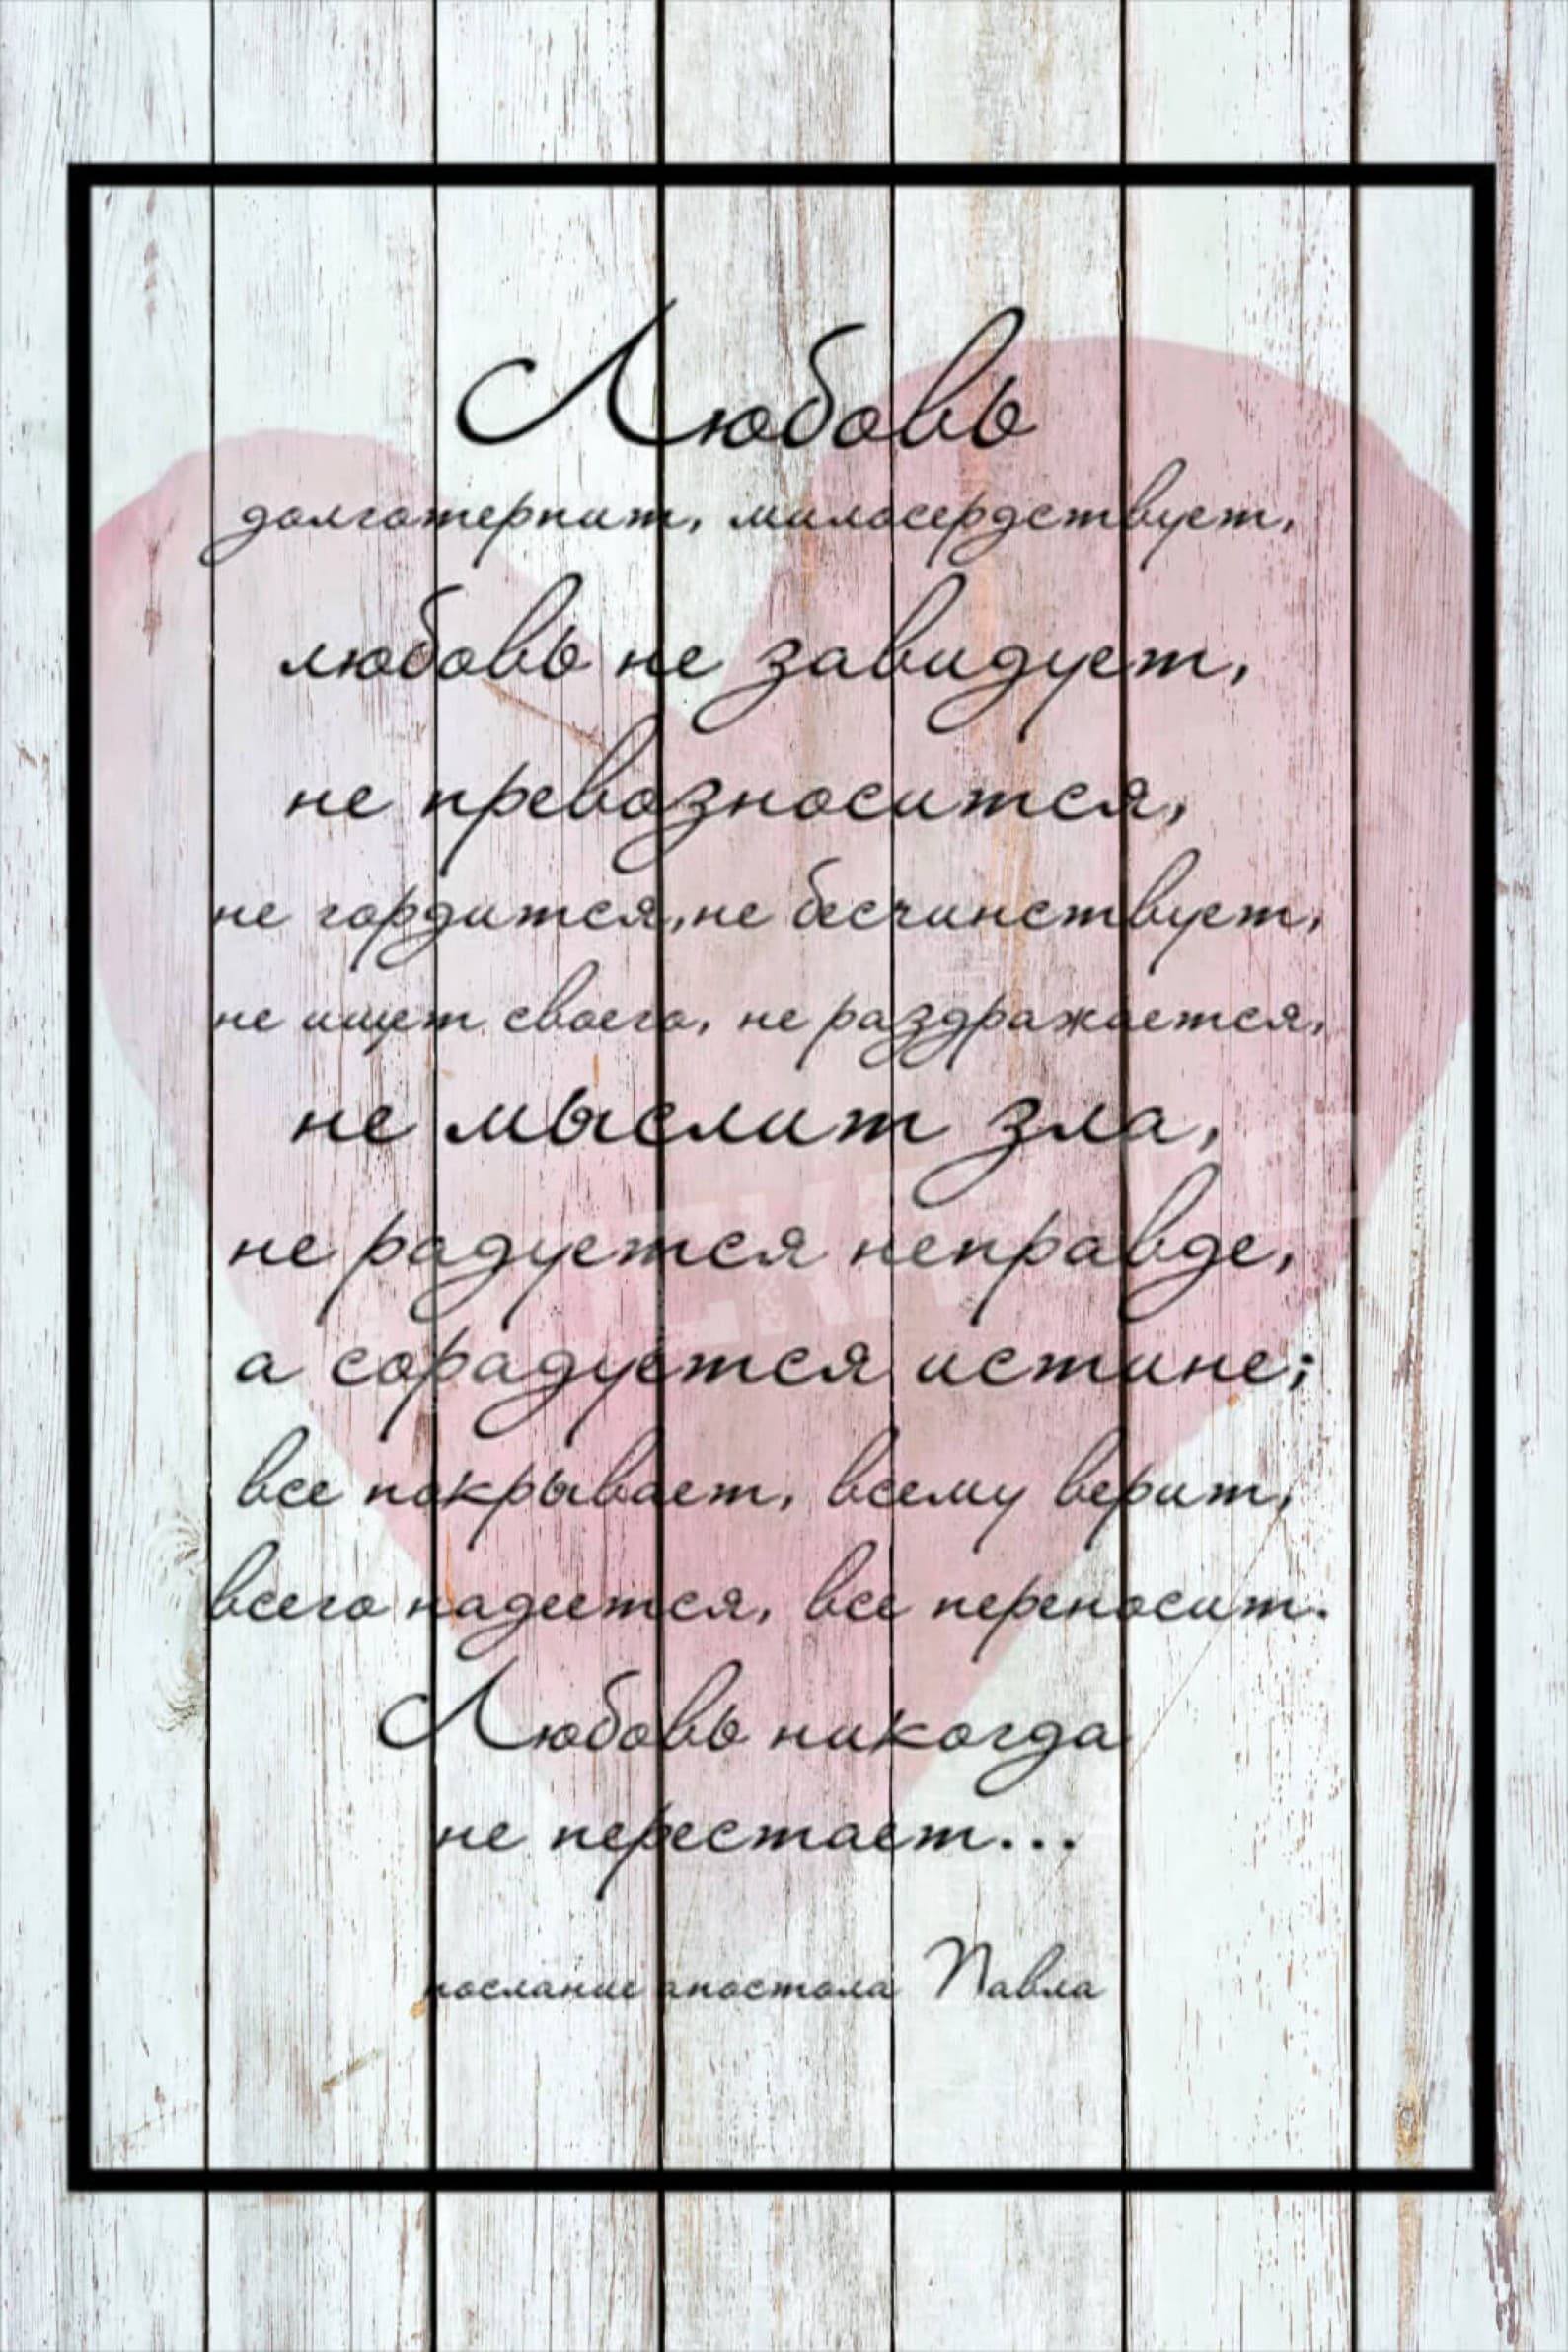 Любовь
долготерпит, милосердствует,
любовь не завидует,
не превозносится,
не гордится,не бесчинствует,
не ищет своего, не раздражается,
не мыслит зла,
не радуется неправде,
а сорадуется истине;
все покрывает, всему верит,
всего надеется, все переносит.
Любовь никогда
не перестает...
послание апостола Павла